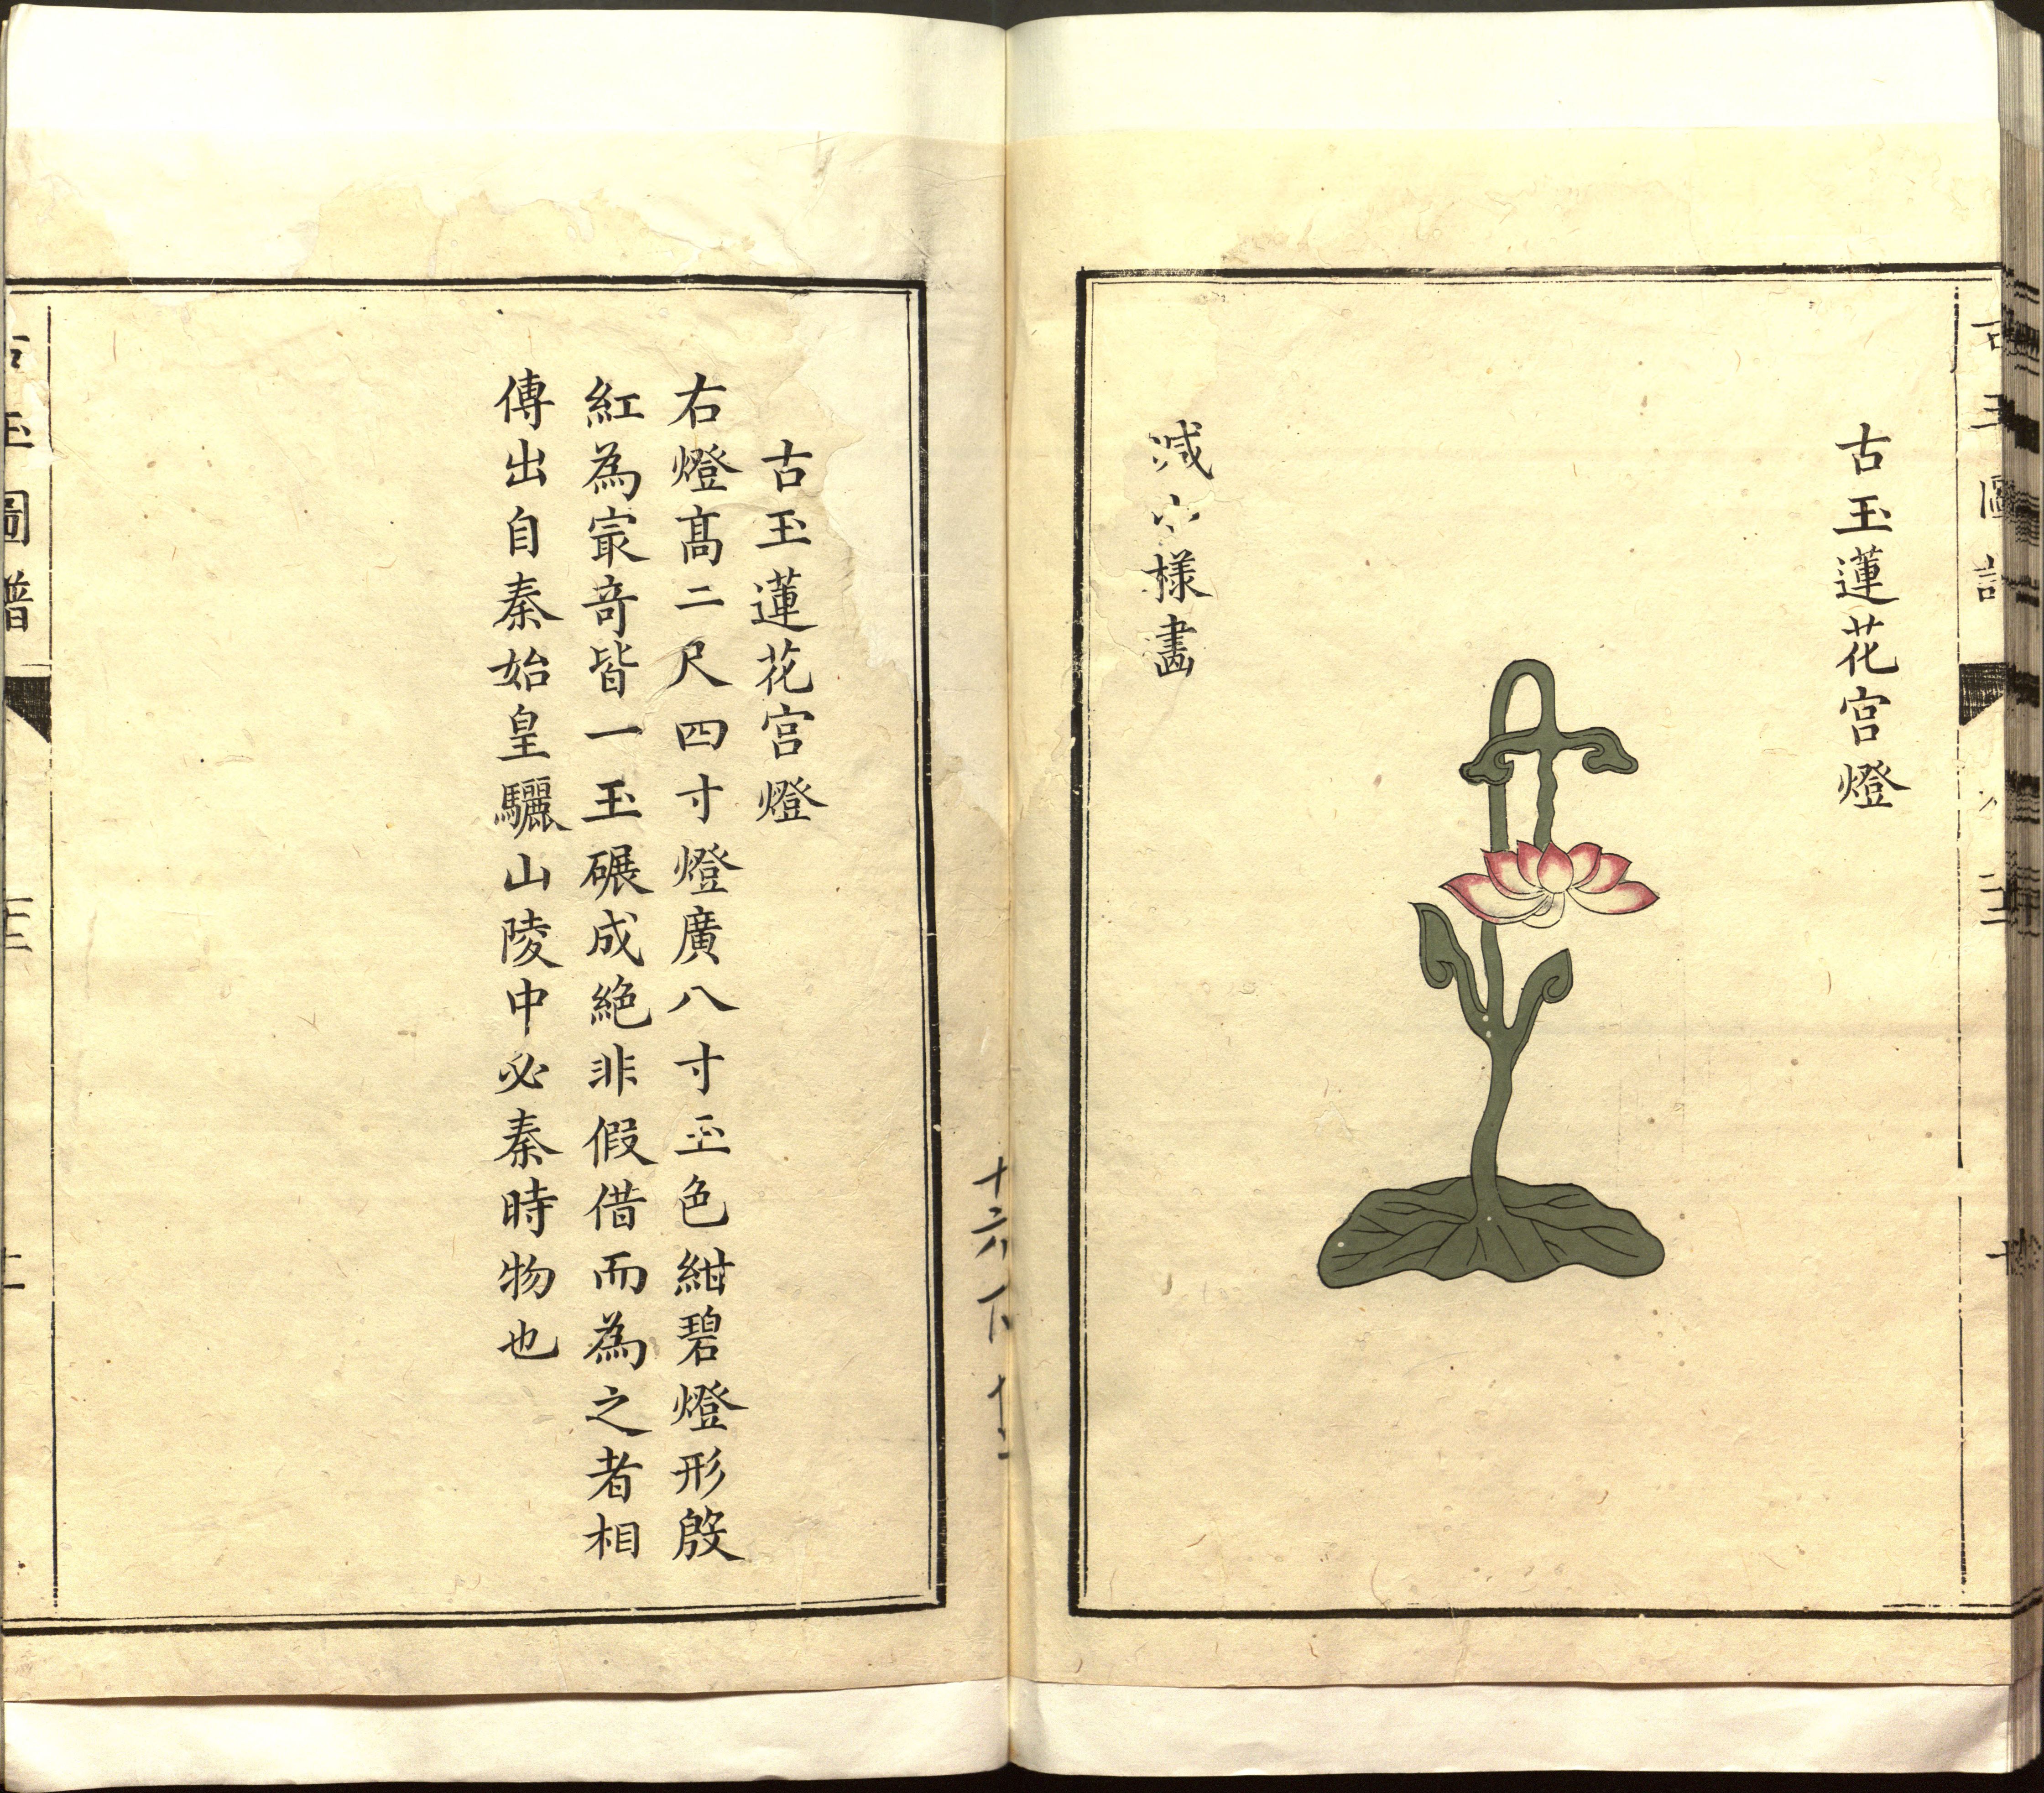 古玉蓮花宮燈
減小樣畫
十六下 十二
古玉蓮花宮燈
右燈髙二尺四寸燈廣八寸玉色紺碧燈形殷
紅為冣竒皆一玉碾成絶非假借而為之者相
傳出自秦始皇驪山陵中必秦時物也
古玉圖譜